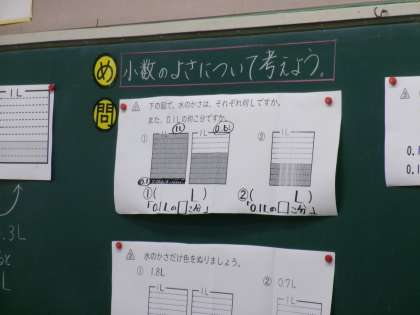 め 小数のよさについて考えよう。
問
下の図で、水のかさは、それぞれ何Lですか。
また、0.1Lの何こ分ですか。
① 1L 0.6L ② 1L
0.1
①( L) ②( L)
「0.1Lの□こ分」 「0.1Lの□こ分」
水のかさだけ色をぬりましょう。
① 1.8L ② 0.7L
1L 1L 1L
1L
.3L
L
0.
0.1